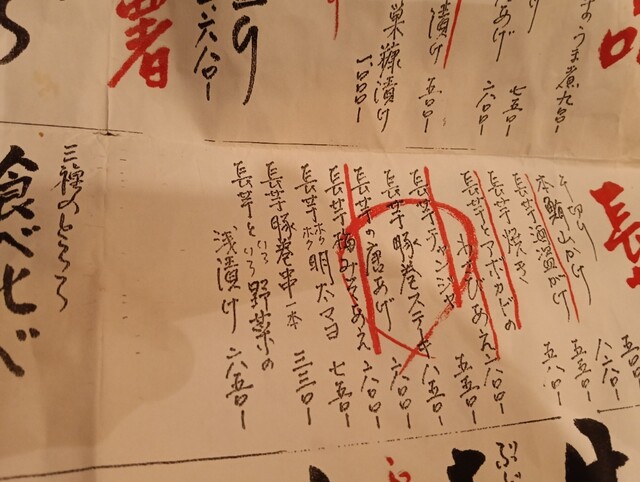 うま煮 九〇〇ー
七五〇ー
あげ 六〇〇ー
漬け 五〇〇ー
巣糠漬け 一〇〇〇ー
六八〇ー
署
長
千切り
本鮪山かけ
長芋酒盗がけ
長芋焼き
長芋とアボカドの
わさびあえ 六〇〇ー
長芋チャンジャ 五五〇ー
長芋豚巻ステーキ 八五〇ー
長芋の唐あげ 六〇〇ー
長芋梅みそあえ 六〇〇ー
長芋ホクホク明太マヨ 七五〇ー
長芋豚巻串 一本 三三〇ー
長芋といろいろ野菜の
浅漬け 六五〇ー
三種のとろろ
食べ比べ